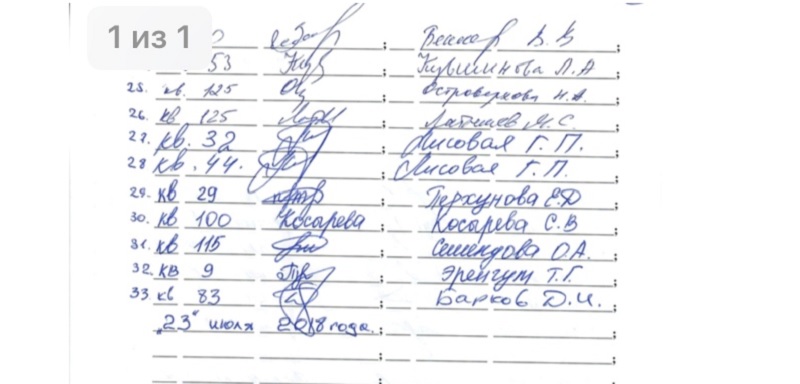 1 из 1
53 Кувшинова Л.А
25. кв. 125 Островерхова Н.А.
26. кв 125 Латышев М.С.
27. кв. 32 Лисовая Г.П.
28 кв. 44. Лисовая Г.П.
29. кв 29 Перхунова Е.Д
30. кв 100 Косарева Косарева С.В
31. кв 115 О.А.
32. кв 9 Эренгум Т.Г.
33. кв 83 Барков Д.И.
"23" июля 2018 года.